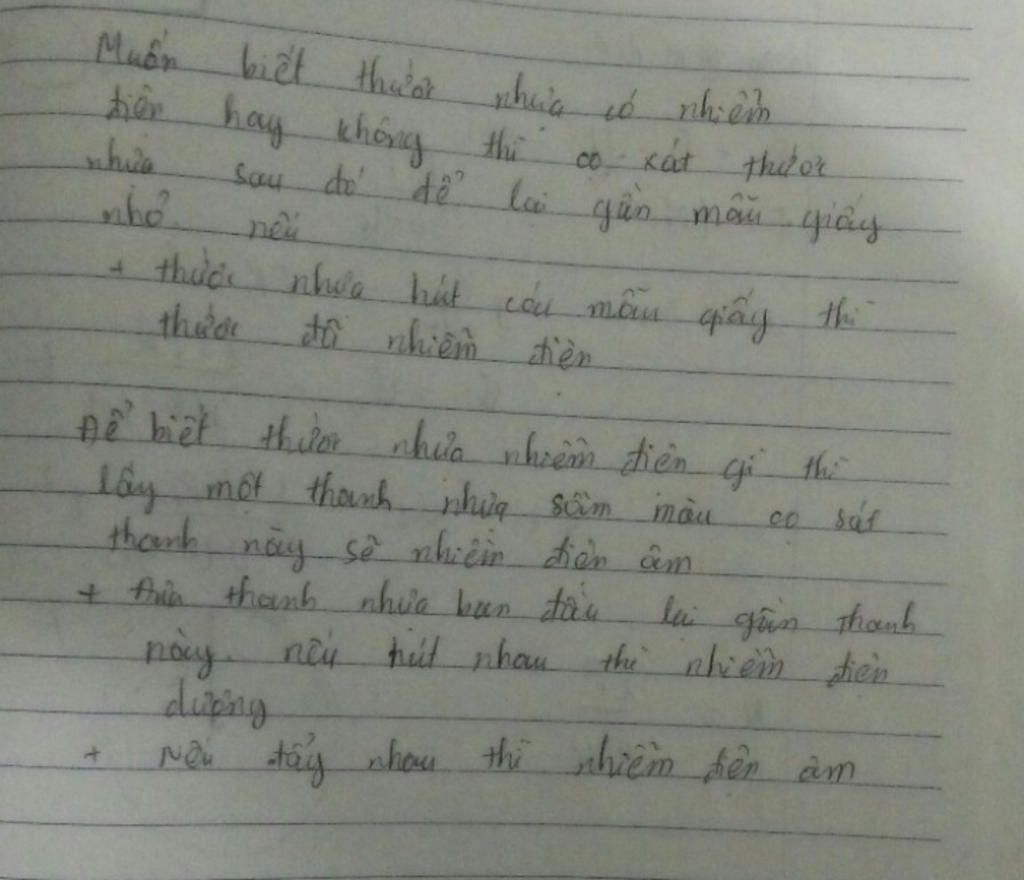 Muốn biết thước nhựa có nhiễm
điện hay không thì cọ xát thước
nhựa sau đó để lại gần mẫu giấy
nhỏ nếu
+ thước nhựa hút các mẫu giấy thì
thước đã nhiễm điện
Để biết thước nhựa nhiễm điện gì thì
lấy một thanh nhựa sẫm màu cọ sát
thanh này sẽ nhiễm điện âm
+ Đưa thanh nhựa ban đầu lại gần thanh
này. nếu hút nhau thì nhiễm điện
dương
+ Nếu đẩy nhau thì nhiễm điện âm